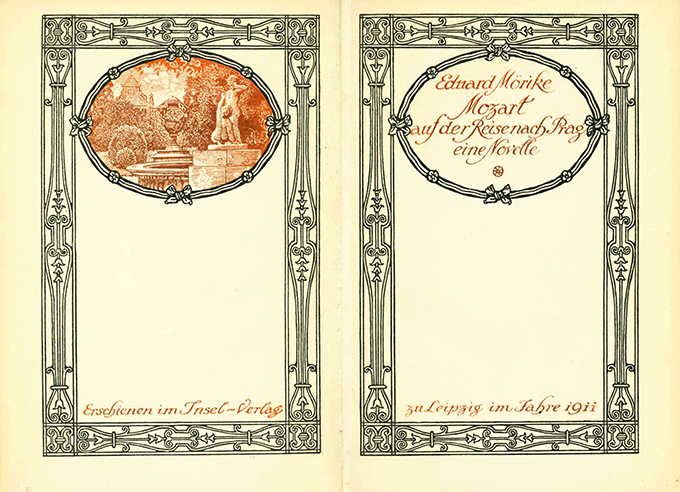 Erschienen im Insel-Verlag
Eduard Mörike
Mozart
auf der Reise nach Prag
eine Novelle
zu Leipzig im Jahre 1911